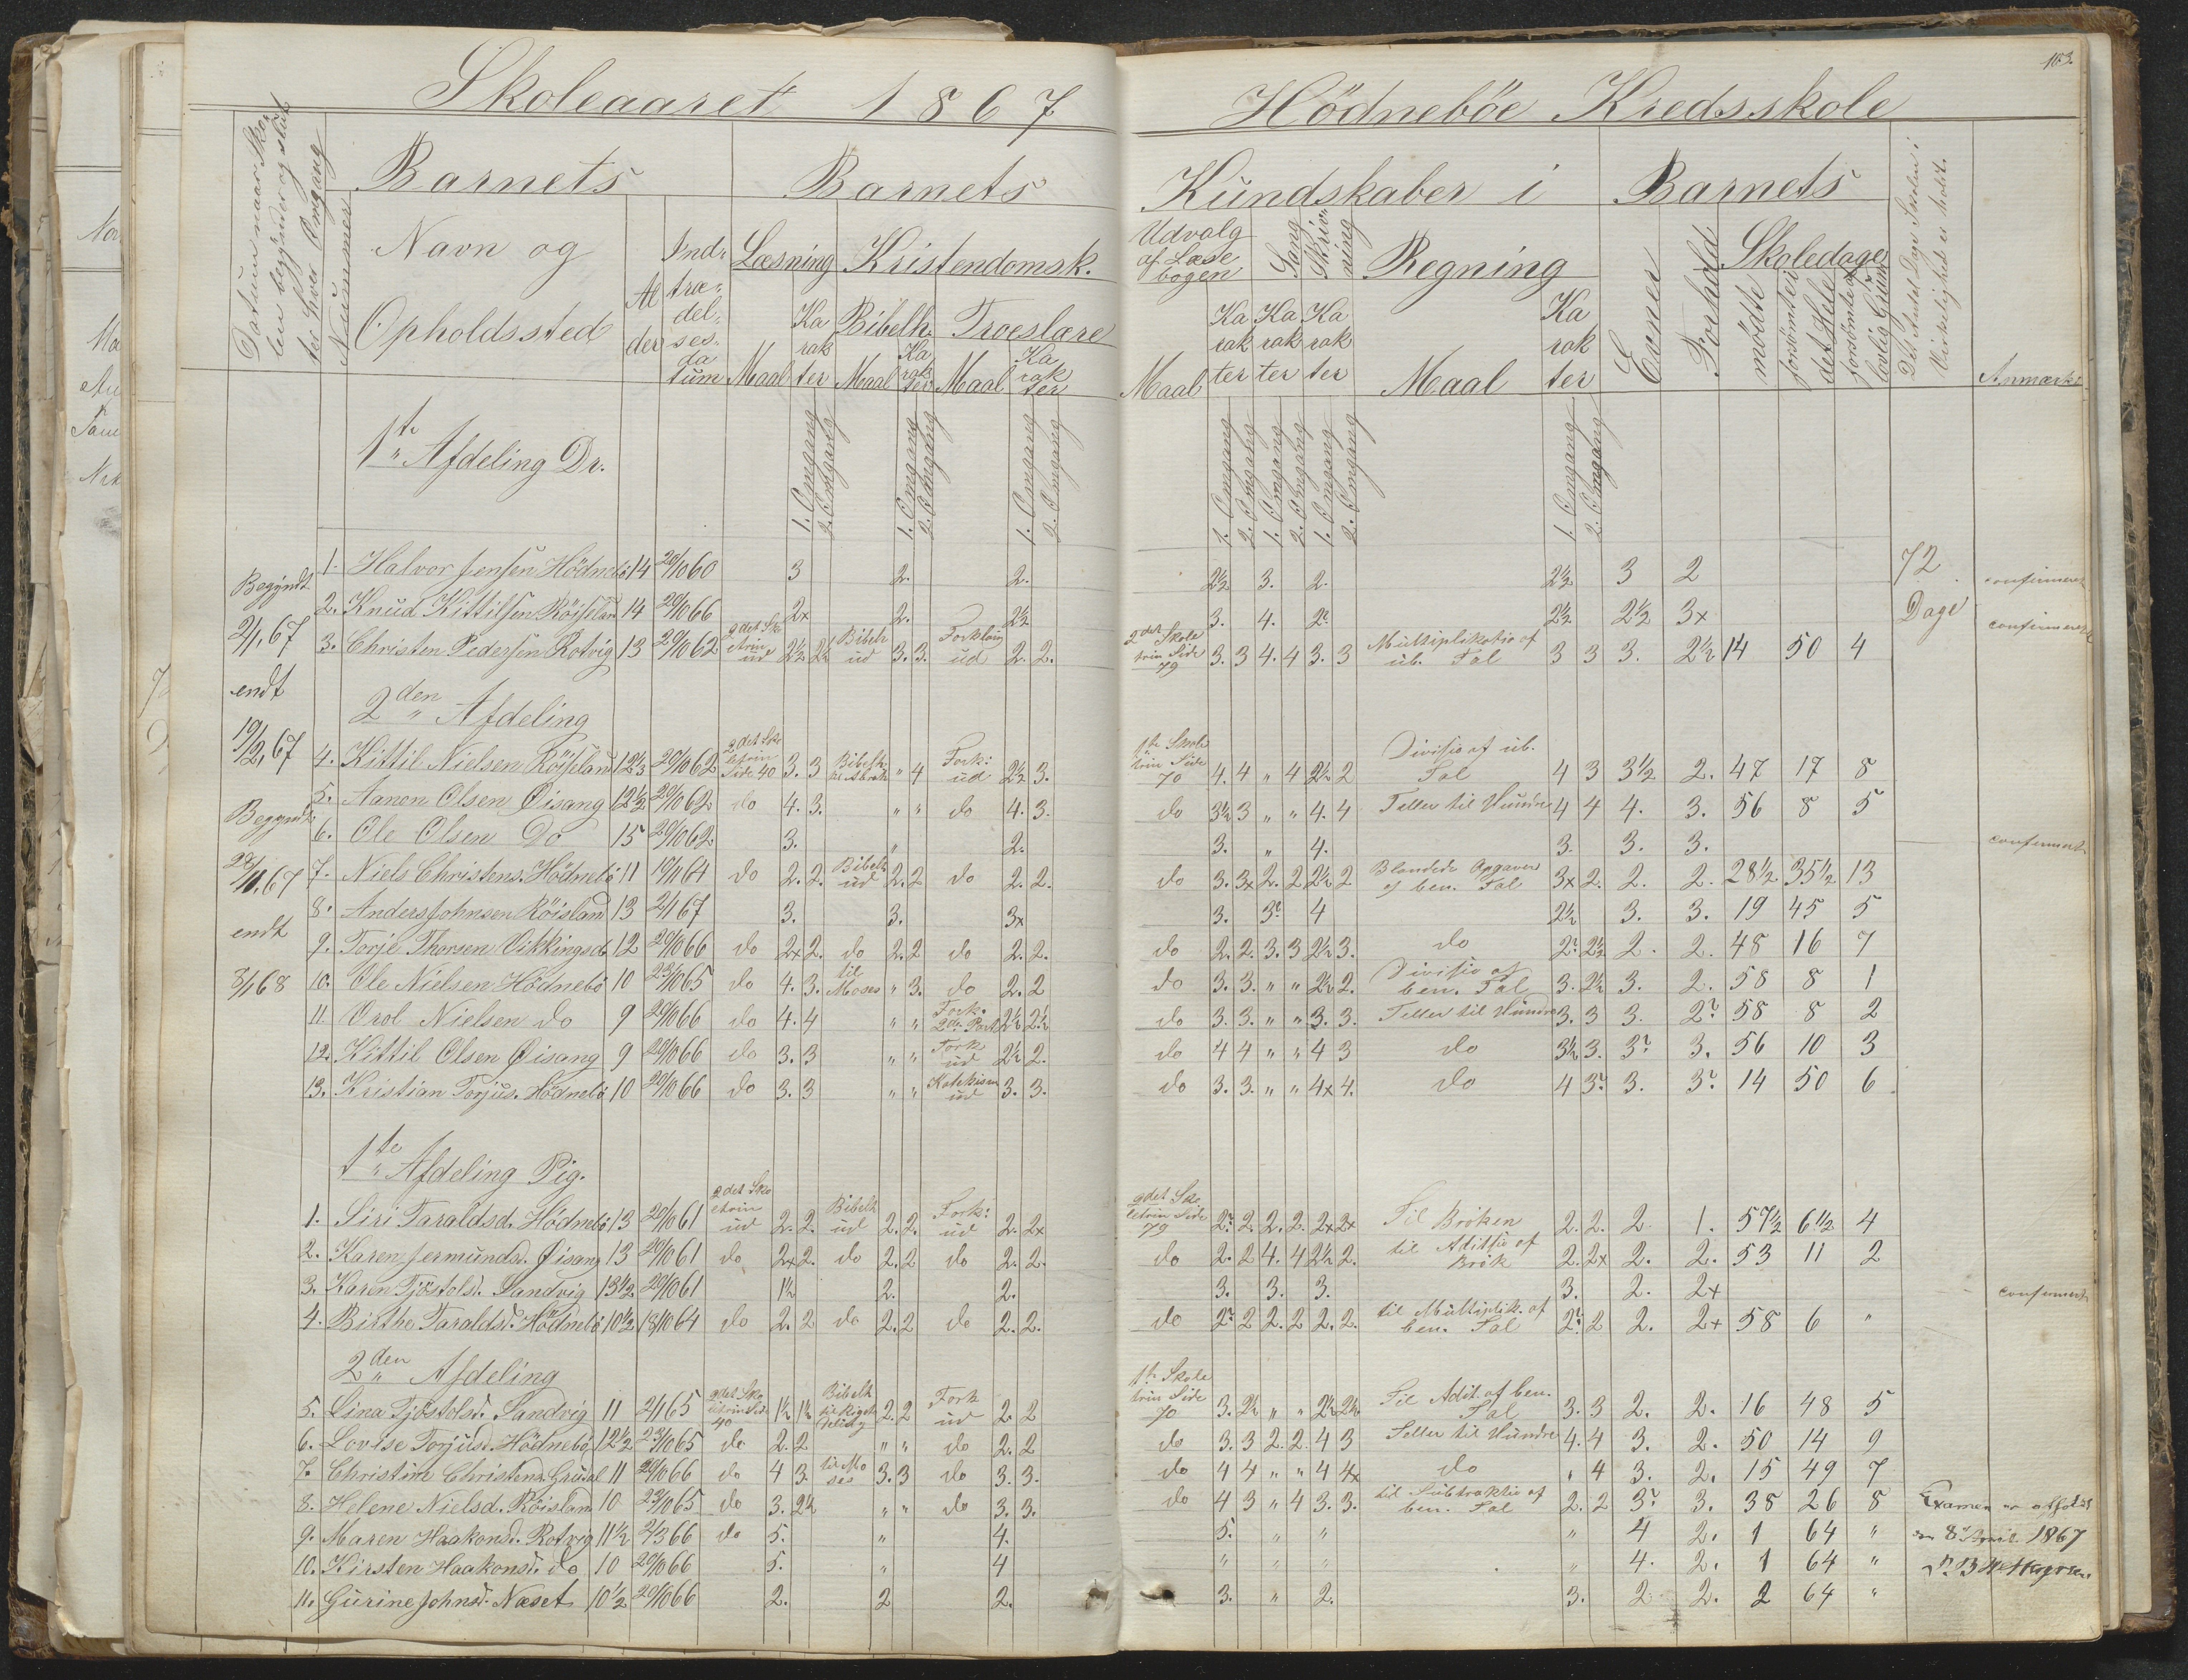 Skoleaaret 1867
Hödneböe Kredsskole
103.
Datum naar Sko-
len begynder og slut-
ter hver Omgang
Nummer
Barnets
Navn og
Opholdssted
Al
der
Ind-
træ-
del-
ses-
da
tum
Barnets
Læsning
Kristendomsk.
Maal
Ka
rak
ter
Bibelh.
Troeslære
Maal
Ka
rak
ter
Maal
Ka
rak
ter
Kundskaber i
Udvalg
af Læse
bogen
Sang
Skriv-
ning
Regning
Maal
Ka
rak
ter
Ka
rak
ter
Ka
rak
ter
Maal
Ka
rak
ter
Barnets
Evner
Forhold
Skoledage
mödte
forsömte i
det Hele
forsömte af
lovlig Grund
Det Antal Dage Skolen i
Virkelighed er holdt.
Anmærk:
1. Omgang
2. Omgang
1. Omgang
2. Omgang
1. Omgang
2. Omgang
1. Omgang
2. Omgang
1. Omgang
2. Omgang
1. Omgang
2. Omgang
1. Omgang
2. Omgang
1te Afdeling Dr.
Begyndt
2/1,67
endt
19/2,67
Begyndt
28/10,67
endt
8/1 68
1. Halvor Jensen Hödnebö 14 20/10 60 3 2. 2. 2½ 3. 2. 2½ 3 2 72 confirmeret
2. Knud Kittilsen Röisland 14 20/10 66 2x 2. 2½ 3. 4. 2? 2½ 2½ 3x Dage confirmeret
3. Christen Pedersen Rotvig 13 20/10 62 2det Sko letrin ud 2½ 2½ Bibelh ud 3. 3. Forklaring ud 2. 2. 2det Skole trin Side 79 3. 3 4. 4 3. 3 Multiplikatio af ub. Tal 3 3 3. 2½ 14 50 4
2den Afdeling
4. Kittil Nielsen Röisland 12½ 20/10 62 2det Sko letrin Side 40 3. 3 Bibelh. " 4 Fork: ud 2½ 3. 1te Skole trin Side 70 4. 4 " 4 2½ 2 Divisio af ub. Tal 4 3 3½ 2. 47 17 8
5. Aanon Olsen Öisang 12½ 20/10 62 do 4. 3. " " do 4. 3. do 3½ 3 " " 4. 4 Teller til Hundre 4 4 4. 3. 56 8 5
6. Ole Olsen Do 15 20/10 62 3. " 2. 3. " 4. 3. 3. 3. confirmert
7. Niels Christens. Hödnebö 11 19/1 64 do 2. 2. Bibelh ud 2. 2 do 2. 2. do 3. 3x 2. 2 2½ 2 Blandede Opgaver af ben. Tal 3x 2. 2. 2. 28½ 35½ 13
8. Anders Johnsen Röisland 13 2/1 67 3. 3. 3x 3. 3? 4 2½ 3. 3. 19 45 5
9. Torje Thorsen Vikkingsd. 12 20/10 66 do 2x 2. do 2. 2 do 2. 2. do 2. 2. 3. 3 2½ 3. do 2? 2½ 2. 2. 48 16 7
10. Ole Nielsen Hödnebö 10 23/10 65 do 4. 3. til Moses " 3. do 2. 2 do 3. 3. " " 2½ 2. Divisio af ben. Tal 3. 2½ 3. 2. 58 8 1
11. Orol Nielsen do 9 20/10 66 do 4. 4 " " Fork. 2d. Part 2½ 2½ do 3. 3. " " 3. 3. Teller til Hundre 3. 3 3. 2? 58 8 2
12. Kittil Olsen Öisang 9 20/10 66 do 3. 3 " " Fork ud 2½ 2. do 4 4 " " 4 3 do 3½ 3. 3? 3. 56 10 3
13. Kristian Torjus. Hödnebö 10 20/10 66 do 3. 3 " " Katekisen ud 3. 3. do 3. 3. " " 4x 4. do 4 3? 3. 3? 14 50 6
1te Afdeling Pig.
1. Siri Taraldsd. Hödnebö 13 20/10 61 2det Sko letrin ud 2. 2. Bibelh ud 2. 2. Fork: ud 2. 2x 2det Sko letrin Side 79 2? 2. 2. 2. 2x 2x Til Bröken 2. 2. 2 1. 57½ 6½ 4
2. Karen Jermundsd. Öisang 13 20/10 61 do 2x 2. do 2. 2 do 2. 2. do 2. 2 4. 4 2½ 2. til Aditio af Brök 2. 2x 2. 2. 53 11 2
3. Karen Tjöstolsd. Sandvig 13½ 20/10 61 1½ 2. 2. 3. 3. 3. 3. 2. 2x confirmert
4. Birthe Taraldsd. Hödnebö 10½ 18/10 64 do 2. 2 do 2. 2 do 2. 2. do 2? 2 2. 2 2. 2. til Multiplik. af ben. Tal 2? 2 2. 2+ 58 6 "
2den Afdeling
5. Lina Tjöstolsd. Sandvig 11 2/1 65 2det Sko letrin Side 40 1½ 1½ Bibelh 2. 2 Fork ud 2. 2 1te Skole trin Side 70 3. 2½ " " 2½ 2½ Til Adit. af ben. Tal 3. 3 2. 2. 16 48 5
6. Lovise Torjusd. Hödnebö 12½ 23/10 65 do 2. 2 " " do 2. 2 do 3. 3 2. 2. 4 3 Teller til Hundre 4. 4 3. 2. 50 14 9
7. Christine Christensd. Grüdal 11 20/10 66 do 4 3. til Mo ses 3. 3 do 3. 3. do 4 4 " " 4 4x do " 4 3. 2. 15 49 7
8. Helene Nielsd. Röisland 10 23/10 65 do 3. 2½ " " do 3. 3. do 4 3 " 4 3. 3. til Subtraktio af ben. Tal 2. 2 3? 3. 38 26 8 Examen er afholdt
9. Maren Haakonsd. Rotvig 11½ 2/3 66 do 5. " 4. 5. " " " 4 2. 1 64 " 8de April 1867
10. Kirsten Haakonsd. do 10 20/10 66 5. " 4 " " " " 4. 2. 1 64 "
11. Gurine Johnsd. Næset 10½ 20/10 66 2. 2 2. 3. " 2. 3. 2 2. 2 64 "